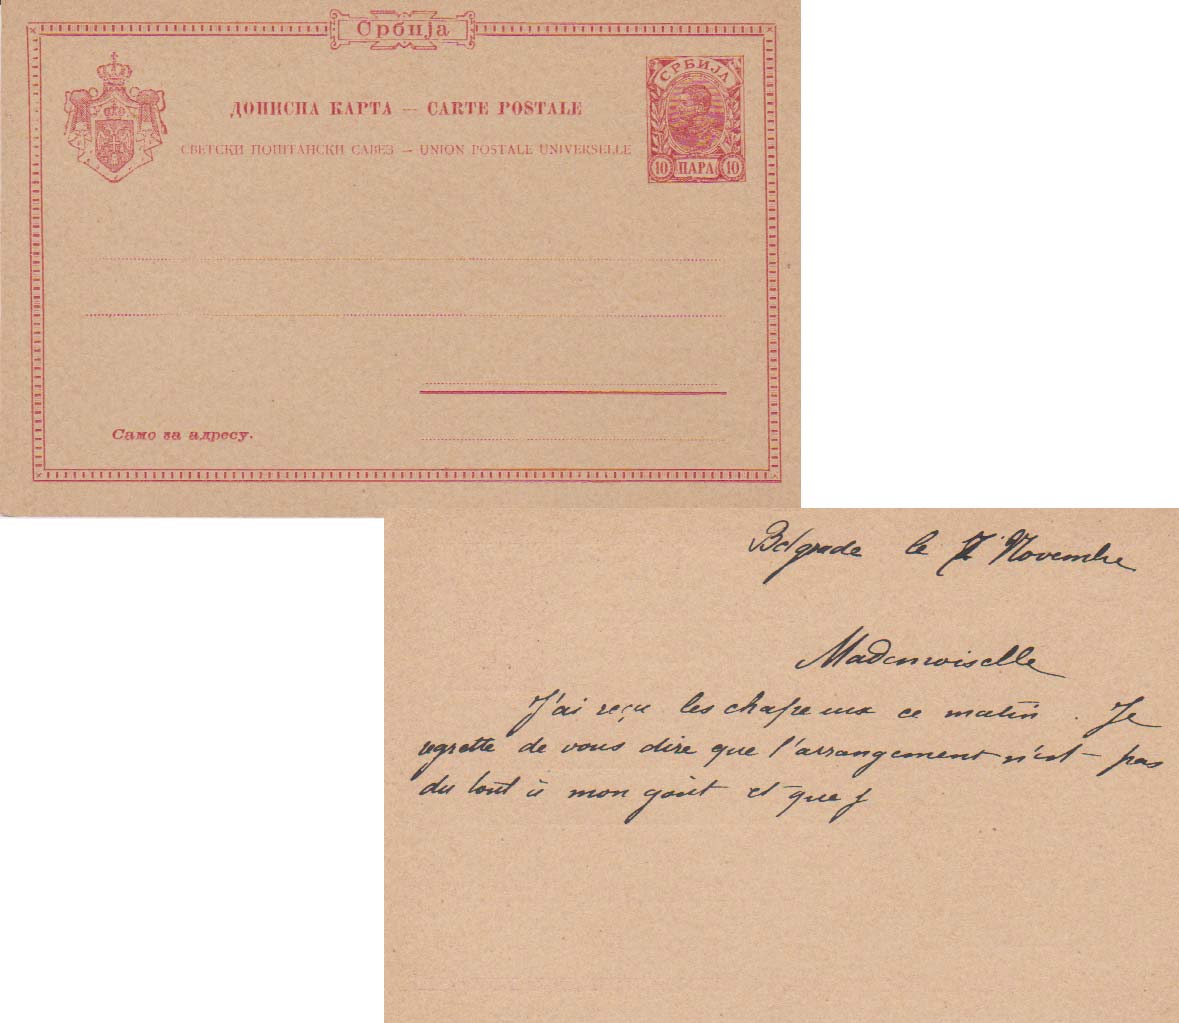 Србија
СРБИЈА
ДОПИСНА КАРТА — CARTE POSTALE
СВЕТСКИ ПОШТАНСКИ САВЕЗ — UNION POSTALE UNIVERSELLE
10 ПАРА 10
Само за адресу.
Belgrade le Novembre
Mademoiselle
J'ai reçu les chapeaux ce matin. Je
regrette de vous dire que l'arrangement n'est pas
du tout à mon goût et que j